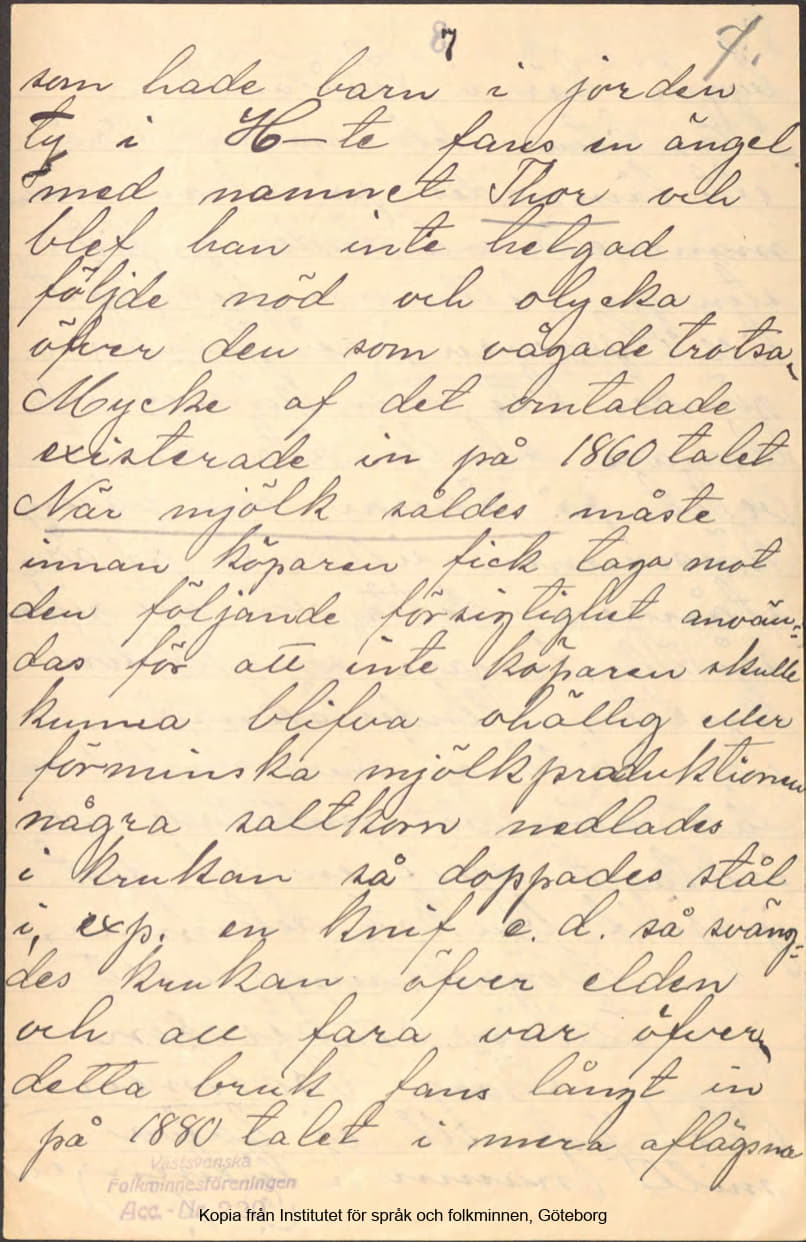 7 7.
som hade barn i jorden
ty i H–te fans en ängel
med namnet Thor och
blef han inte helgad
följde nöd och olycka
öfver den som vågade trotsa
Mycke af det omtalade
existerade in på 1860 talet
När mjölk såldes måste
innan köparen fick taga mot
den följande försigtighet använ=
das för att inte köparen skulle
kunna blifva ohällig eller
förminska mjölkproduktionen
några saltkorn nedlades
i krukan så doppades stål
i, exp. en knif e. d. så sväng=
des krukan öfver elden
och all fara var öfver
detta bruk fans långt in
på 1880 talet i mera aflägsna
Västsvenska
Folkminnesföreningen
Acc. - No
Kopia från Institutet för språk och folkminnen, Göteborg